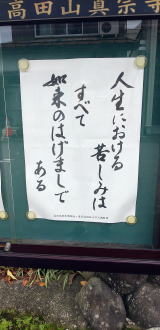 高田山真宗寺
人生における
苦しみは
すべて
如来のはげましで
ある